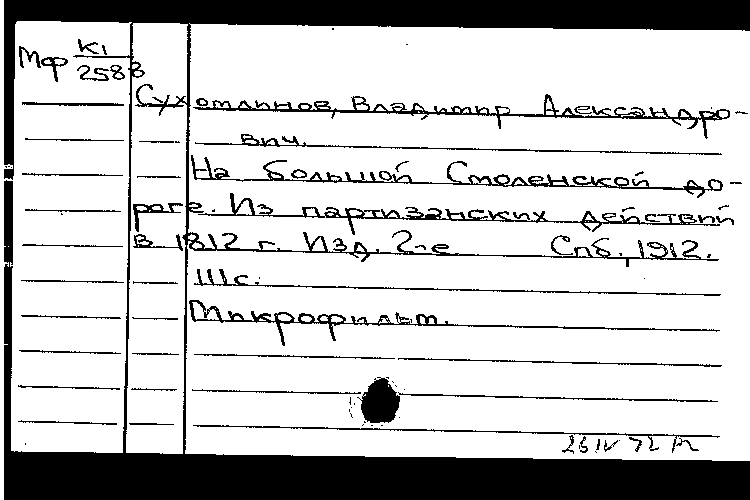 Мф К1
2588
Сухомлинов, Владимир Александро-
вич.
На большой Смоленской до-
роге. Из партизанских действий
в 1812 г. Изд. 2-е Спб., 1912.
111с.
Микрофильм.
26 IV 72